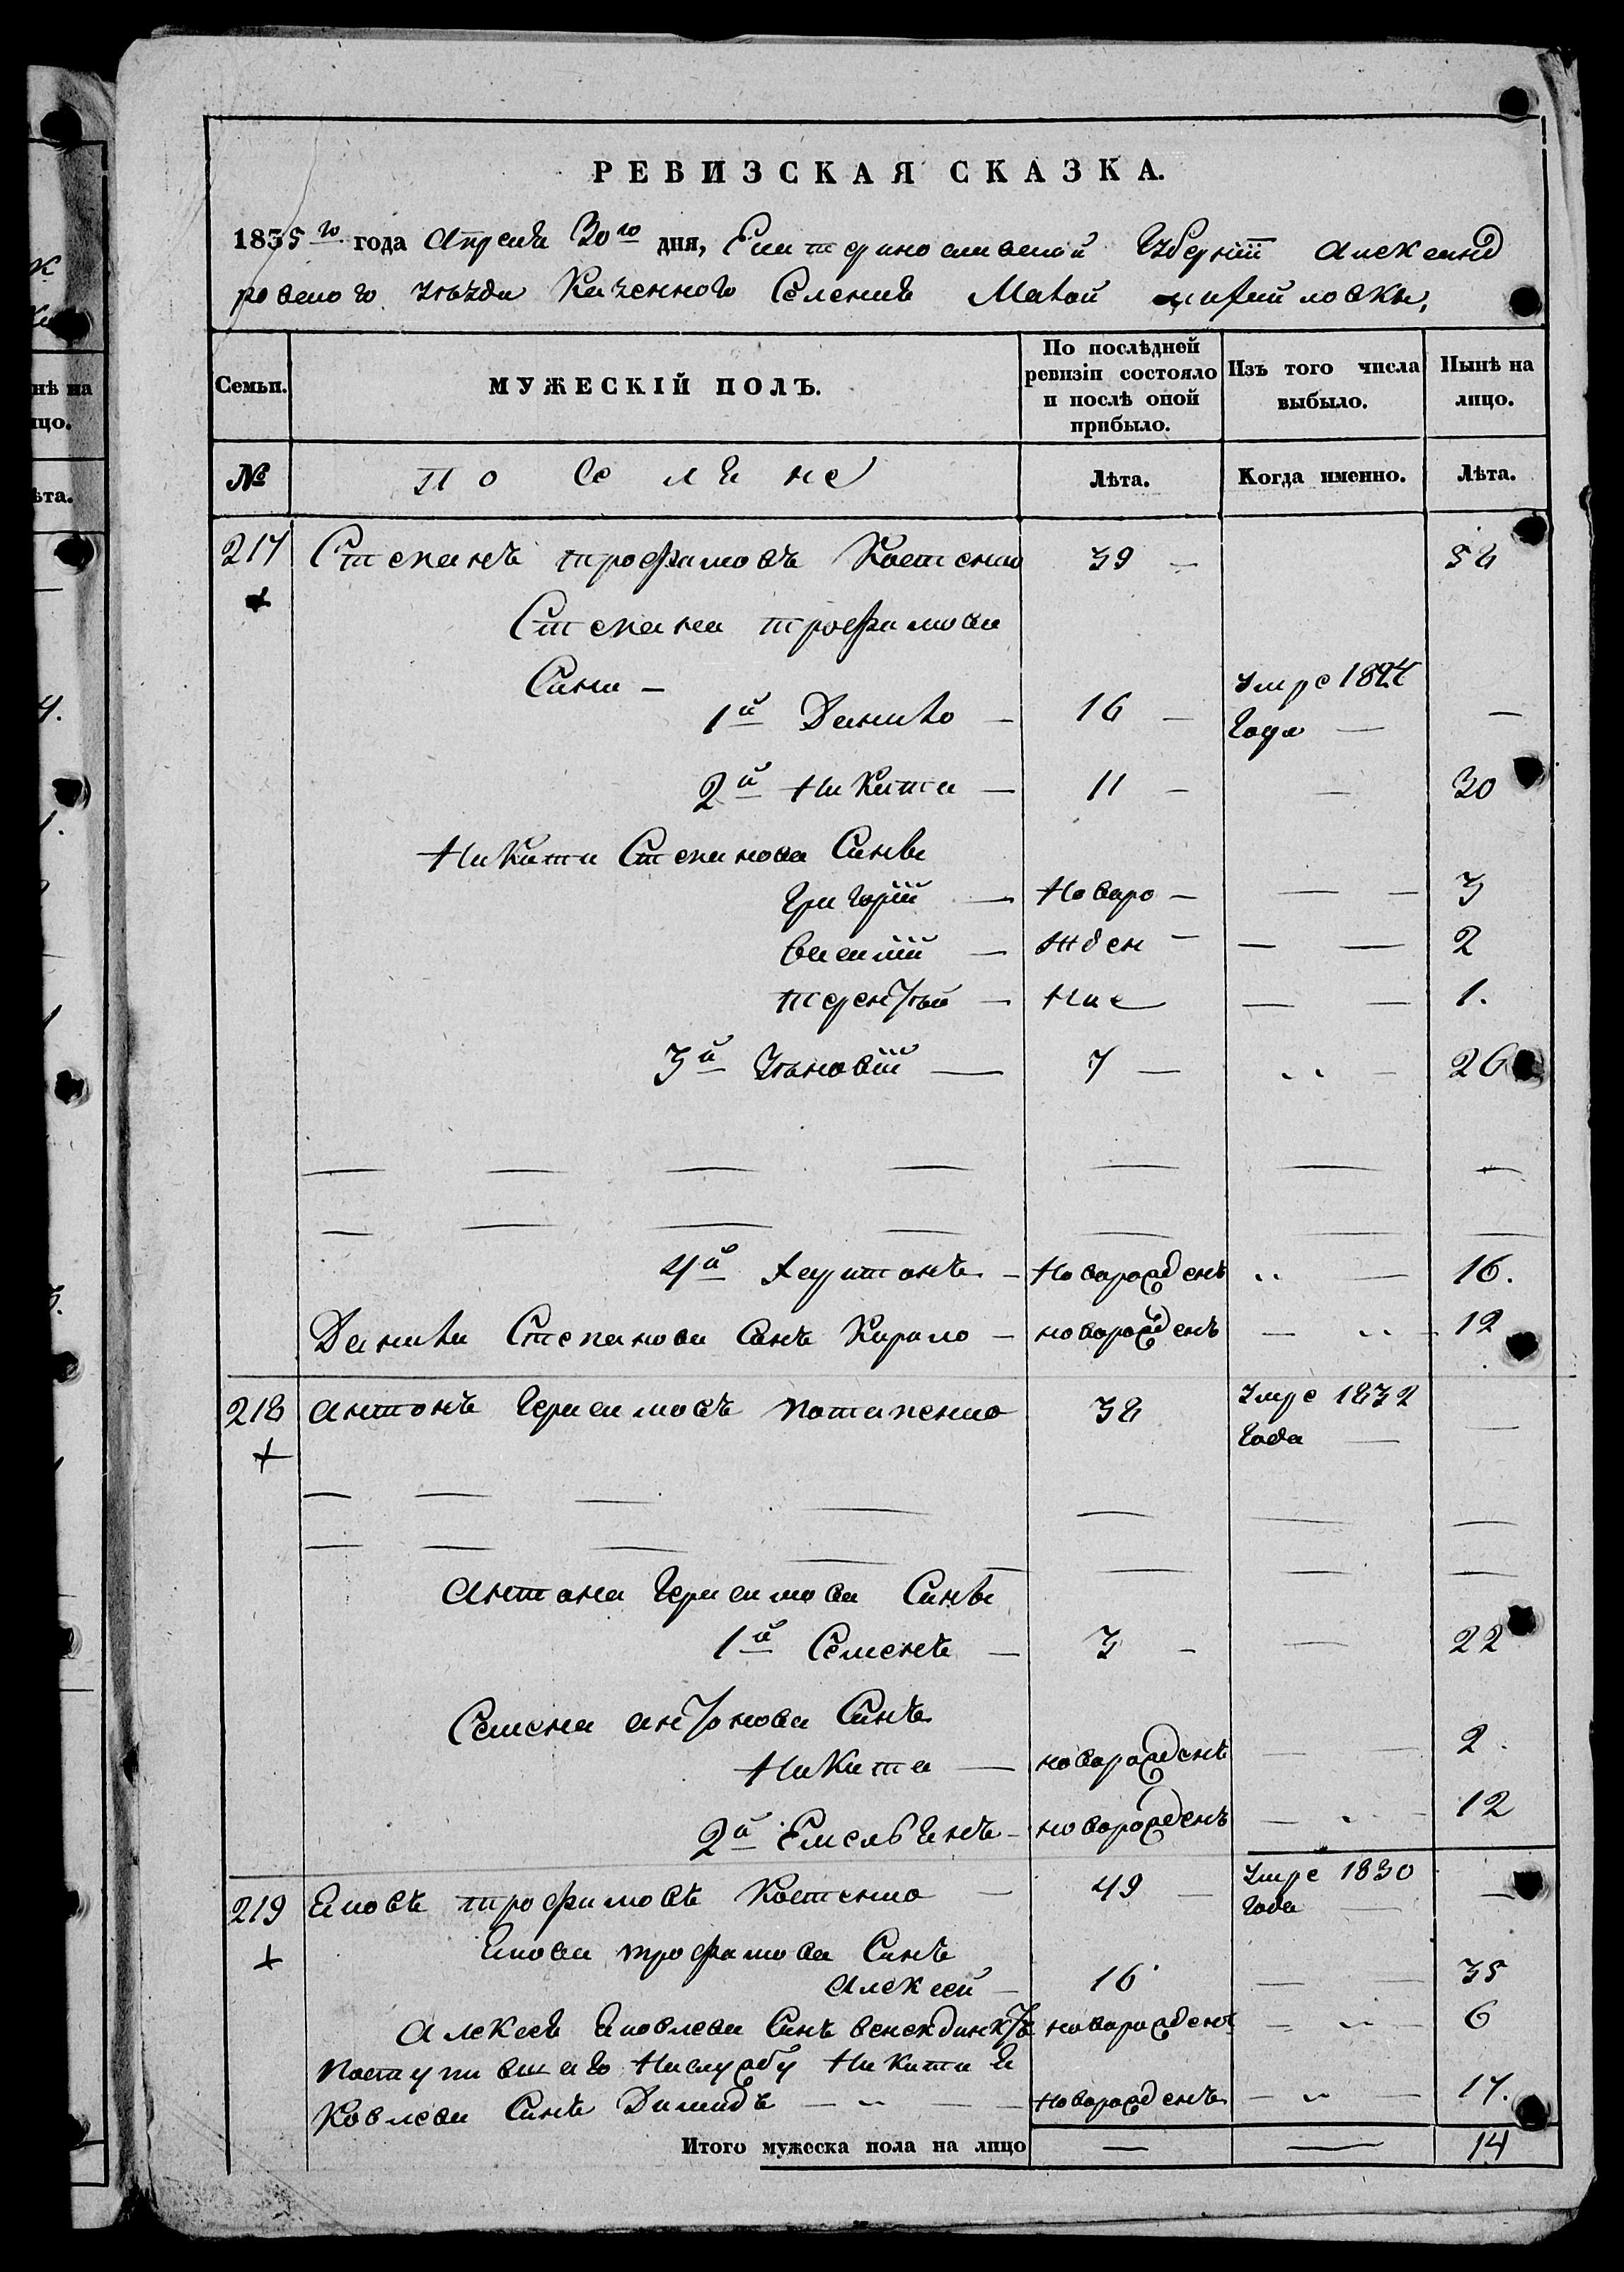 РЕВИЗСКАЯ СКАЗКА.
1835го года Апреля 30го дня, Екатеринославской Губернїи Александ
ровского уѣзда Казенного Селения Малой михайловки,
Семьи.
МУЖЕСКІЙ ПОЛЪ.
По послѣдней ревизіи состояло и послѣ оной прибыло.
Изъ того числа выбыло.
Нынѣ на лицо.
№
поселяне
Лѣта.
Когда именно.
Лѣта.
217 Степанъ трофимовъ Костенко 39 — 58
Степана трофимова
Сини —
1й Данило — 16 — умре 1824 Года — —
2й Никита — 11 — — 30
Никити Степанова Сины
Григорїй — Новоро — — — 3
василїй — жден — — — 2
терентий — ние — — 1.
3й Зѣновїй — 7 — " — 26
4й Харитонъ — Новорожденъ " — 16.
Данила Степанова Синъ Кирило — новорожденъ — " — 12
218 антонъ Герасимовъ потапенко 38 Умре 1832 Года — —
антона Герасимова Сины
1й Семенъ — 3 — — 22
Семена антонова Синъ
Никита — новорожденъ — — 2.
2й Емельянъ — новорожденъ — " — 12
219 Яковъ трофимовъ Костенко — 49 — Умре 1830 Года — —
Якова трофимова Синъ
Алексей — 16 — — 35
Алексея Яковлева Синъ венедиктъ новорожденъ — " — 6
поступившаго На службу Никити Я
ковлева Синъ Димидъ — " — — новорожденъ — " — 17.
Итого мужеска пола на лицо — — 14